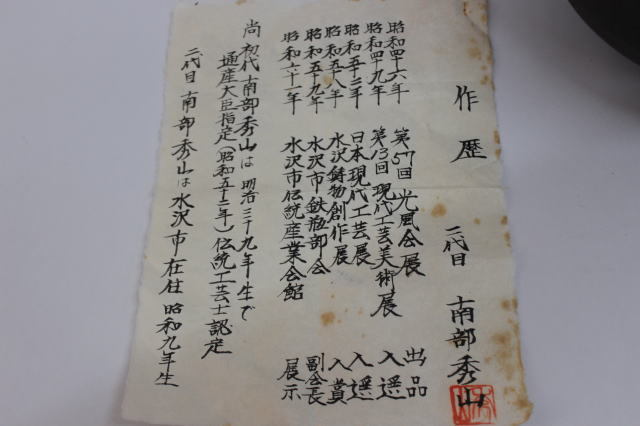 作歴
二代目 南部秀山
昭和四十六年 第57回光風会展 出品
昭和四十九年 第13回現代工芸美術展 入選
昭和五十三年 日本現代工芸展 入選
昭和五十八年 水沢鋳物創作展 入賞
昭和五十九年 水沢市鉄瓶部会 副会長
昭和六十一年 水沢市伝統産業会館 展示
尚初代南部秀山は明治三十九年生で
通産大臣指定(昭和五十二年)伝統工芸士認定
二代目南部秀山は水沢市在住 昭和九年生